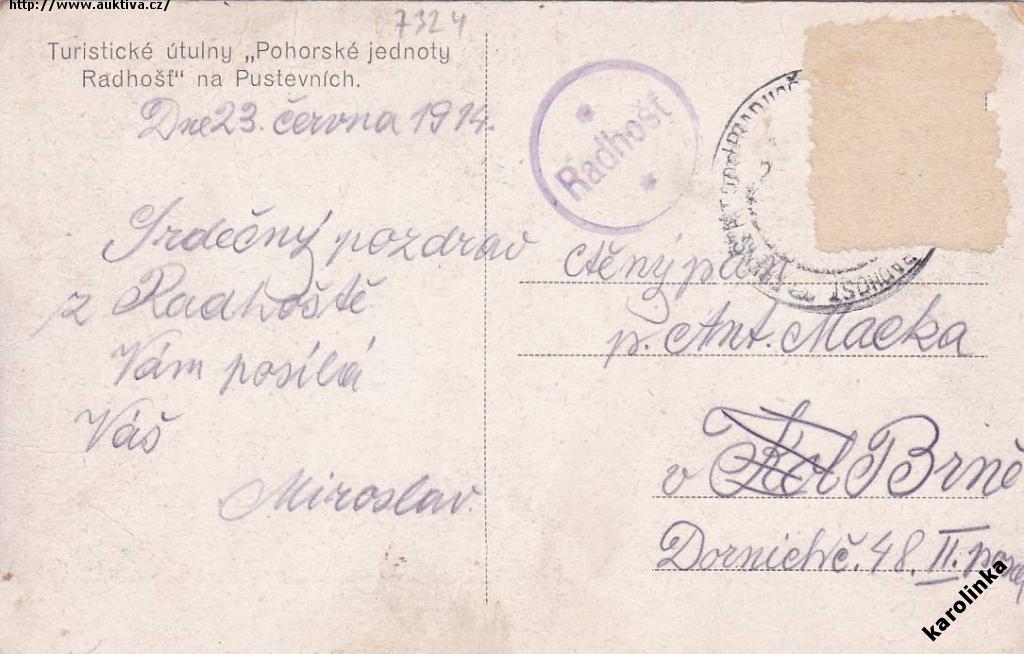 http://www.auktiva.cz/
7324
Turistické útulny „Pohorské jednoty
Radhošť" na Pustevních.
Dne 23. června 1914.
Srdečný pozdrav
z Radhoště
Vám posílá
Váš
Miroslav.
Radhošť
RADHOŠŤ
ctěný pán
p. Ant. Macka
v Brně
Dornich č. 48. II. posch
karolinka